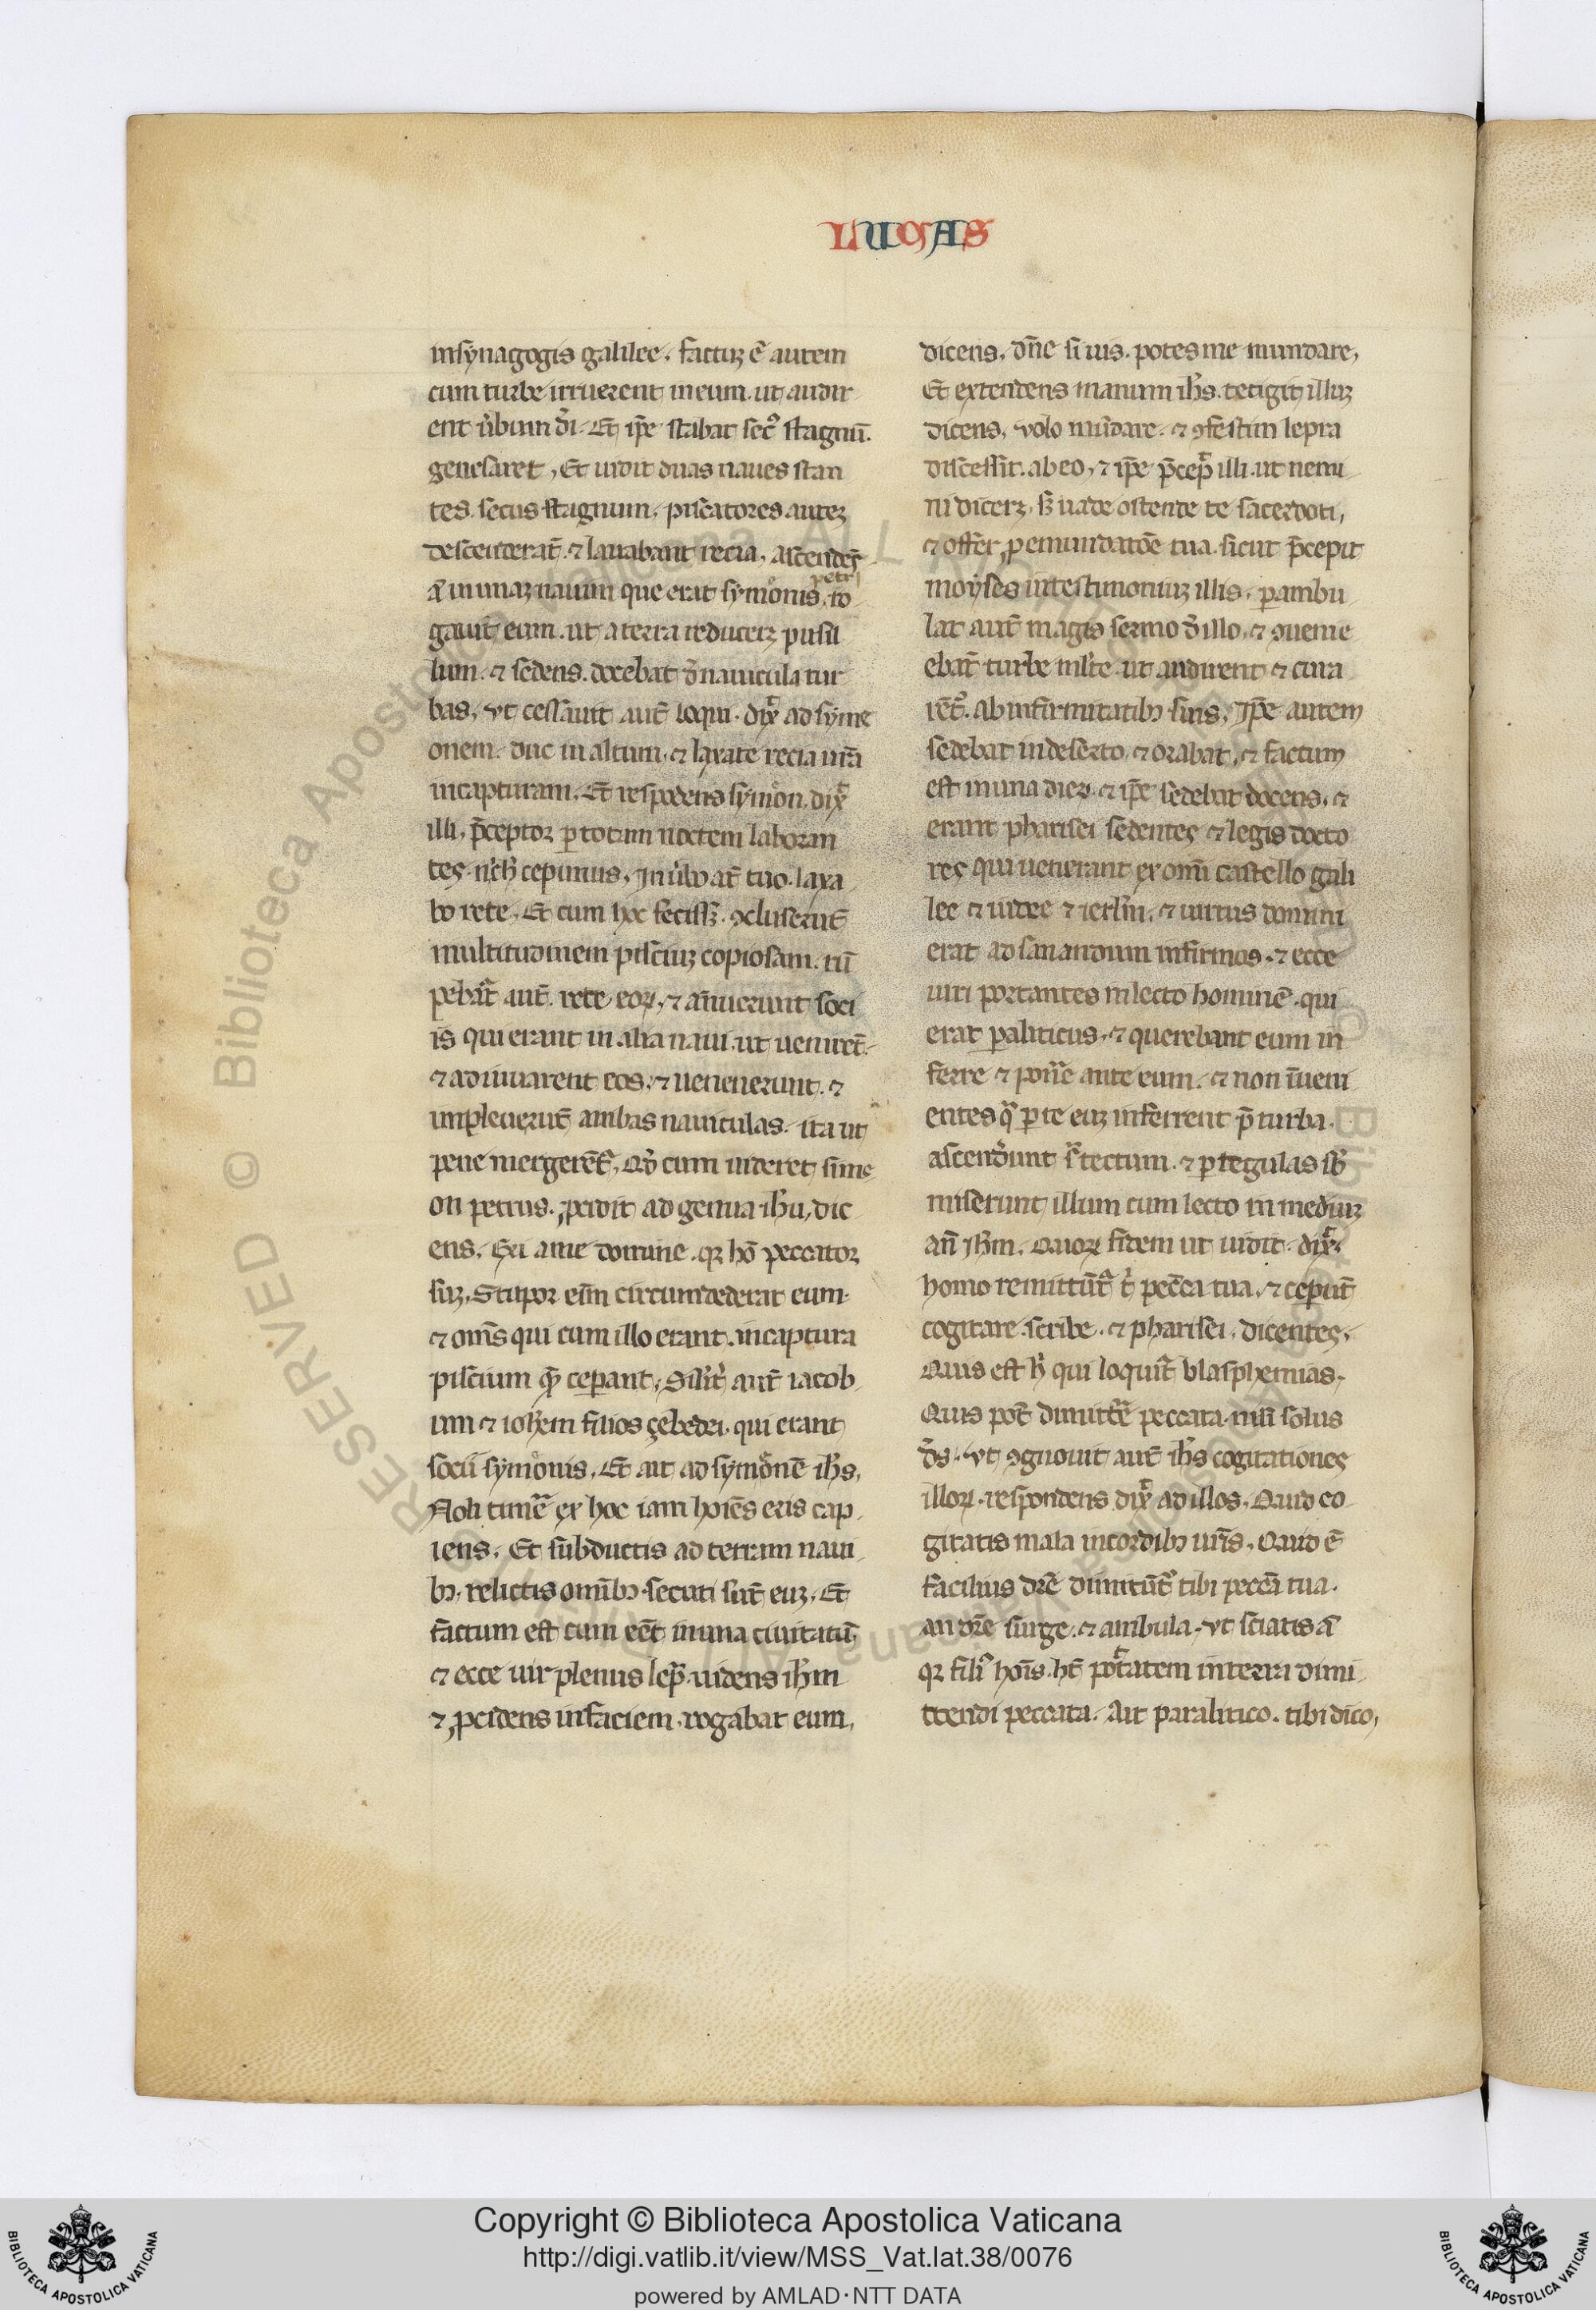 LUCAS
insynagogis galilee. factuꝫ ē autem
cum turbe irruerent ineum. ut audir
ent ub̓um di. Et ip̄e stabat secꝰ stagnū.
genesaret. Et uidit duas naues stan
tes. secus stagnum. piscatores autꝫ
descenderāt. ⁊ lauabant recia. ascendēs
aū inunaꝫ nauim que erat symonis. ro
petri
gauit eum. ut a terra reducerꝫ pusil
lum. ⁊ sedens. docebat d̓nauicula tur
bas. vt cessauit aut̄ loqui. dix̄ ad syme
onem. duc in altum. ⁊ laxate recia ur̄a
incapturam. Et respōdens symon dix̄
illi. p̄ceptor ꝑ totam noctem laboran
tes. nich̓ cepimus. In ub̓o at̄ tuo. laxa
bo rete. Et cum hoc fecissꝫ. ꝯcluserūt
multitudinem pisciuꝫ copiosam. rū
pebat̄ aut̄. rete eoꝝ. ⁊ annuerunt soci
is qui erant in alia naui. ut uenirēt.
⁊ adiuuarent eos. ⁊ uenenerunt. ⁊
impleuerūt ambas nauiculas. ita ut
pene mergerent̄. Qd̓ cum uideret sime
on petrus. ꝓcidit ad genua ih̄u, dic
ens. Exi a me domine. qꝛ hō peccator
suꝫ. Stupor eīm circumdederat eum.
⁊ om̄s qui cum illo erant. incaptura
piscium quā ceperant. Silit̓ aut̄ iacob
um ⁊ ioh̄em filios çebedei. qui erant
socii symonis. Et ait ad symonē ih̄s.
Noli timē ex hoc iam hoīes eris cap
iens. Et subductis ad terram naui
bꝫ. relictis om̄ibꝫ. secuti sūt euꝫ. Et
factum est cum eēt inuna ciuitatū.
⁊ ecce uir plenus lep̄. uidens ih̄m
⁊ ꝓcidens infaciem. rogabat eum,
dicens. dn̄e si uis. potes me mundare,
Et extendens manum ih̄s. tetigit illuꝫ
dicens. volo mūdare. ⁊ ꝯfestim lepra
discessit. ab eo. ⁊ ip̄e p̄cep̄ illi. ut nemi
ni dicerꝫ. sꝫ uade ostende te sacerdoti,
⁊ offer ꝓ emundatōe tua. sicut p̄cepit
moyses intestimoniuꝫ illis. ꝑambu
lat aut̄ magis sermo d̓ illo. ⁊ ꝯuenie
ebat̄ turbe ml̓te. ut audirent ⁊ cura
rēt̄. ab infirmitatibꝫ suis. Ip̄e autem
sedebat indeserto. ⁊ orabat. ⁊ factum
est inuna dieꝝ. ⁊ ip̄e sedebat docens. ⁊
erant pharisei sedentes ⁊ legis docto
res qui uenerant ex om̄i castello gali
lee ⁊ iudee ⁊ ierl̄m. ⁊ uirtus domini
erat ad sanandum infirmos. ⁊ ecce
uiri portantes inlecto hominē. qui
erat ꝑaliticus. ⁊ querebant eum in
ferre ⁊ pone͛ ante eum. ⁊ non īueni
entes qᵃ parte euꝫ inferrent p̄ turba.
ascend̓unt sᵃ tectum. ⁊ ꝑ tegulas sb̓
miserunt illum cum lecto in mediuꝫ
an̄ ih̄m. Quoꝝ fidem ut uidit. dix̄.
homo remittūt̄ tⁱ pecc̄a tua. ⁊ ceperūt
cogitare. scribe. ⁊ pharisei. dicentes.
Quis est hⁱ qui loquit̄ blasphemias.
Quis pot̄ dimitte͛ peccata. nisi solus
ds̓. vt ꝯgnouit aut̄ ih̄s cogitationes
illoꝝ. respondens dix̄ ad illos. Quid co
gitatis mala incordibꝫ ur̄is. Quid ē
facilius dr̄e dimittūt̄ tibi pecc̄a tua.
an dr̄e surge. ⁊ ambula. vt sciatis aū
qꝛ filiꝰ hoīs. ht̄ pot̄atem interra dimi
ttendi peccata. Ait paralitico. tibi dico,
Copyright © Biblioteca Apostolica Vaticana
http://digi.vatlib.it/view/MSS_Vat.lat.38/0076
powered by AMLAD·NTT DATA
BIBLIOTECA APOSTOLICA VATICANA
BIBLIOTECA APOSTOLICA VATICANA